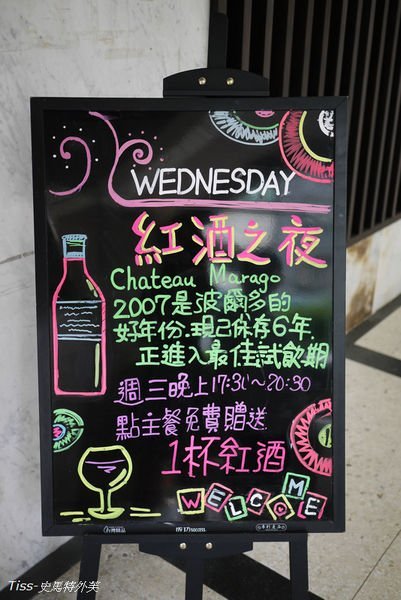 WEDNESDAY
紅酒之夜
Chateau Marago
2007是波爾多的
好年份.現已保存6年.
正進入最佳試飲期
週三晚上17:30~20:30
點主餐免費贈送
1杯紅酒
WELCOME
Tiss-史馬特外芙